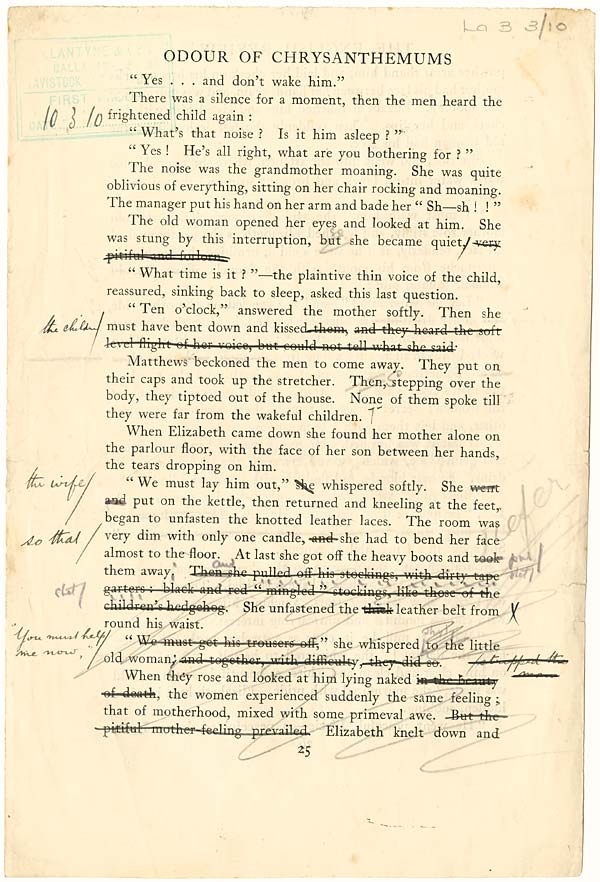 La B 3/10
LANTYNE &
TAVISTOCK
FIRST
10 3 10
ODOUR OF CHRYSANTHEMUMS
“ Yes . . . and don’t wake him.”
There was a silence for a moment, then the men heard the
frightened child again :
“ What’s that noise ? Is it him asleep ? ”
“ Yes ! He’s all right, what are you bothering for ? ”
The noise was the grandmother moaning. She was quite
oblivious of everything, sitting on her chair rocking and moaning.
The manager put his hand on her arm and bade her “ Sh—sh ! ! ”
The old woman opened her eyes and looked at him. She
was stung by this interruption, but she became quiet, very
pitiful and forlorn.
“ What time is it ? ”—the plaintive thin voice of the child,
reassured, sinking back to sleep, asked this last question.
“ Ten o’clock,” answered the mother softly. Then she
the children/ must have bent down and kissed them, and they heard the soft
level flight of her voice, but could not tell what she said.
Matthews beckoned the men to come away. They put on
their caps and took up the stretcher. Then, stepping over the
body, they tiptoed out of the house. None of them spoke till
they were far from the wakeful children.
When Elizabeth came down she found her mother alone on
the parlour floor, with the face of her son between her hands,
the tears dropping on him.
the wife/ “ We must lay him out,” she whispered softly. She went
and put on the kettle, then returned and kneeling at the feet,
began to unfasten the knotted leather laces. The room was
so that/ very dim with only one candle, and she had to bend her face
almost to the floor. At last she got off the heavy boots and took
and
them away. Then she pulled off his stockings, with dirty tape
garters : black and red “ mingled ” stockings, like those of the
children’s hedgehog. She unfastened the thick leather belt from X
round his waist.
"You must help
me now,"/ “ We must get his trousers off,” she whispered to the little
old woman, and together, with difficulty, they did so. stripped the
man
When they rose and looked at him lying naked in the beauty
of death, the women experienced suddenly the same feeling ;
that of motherhood, mixed with some primeval awe. But the
pitiful mother-feeling prevailed. Elizabeth knelt down and
25